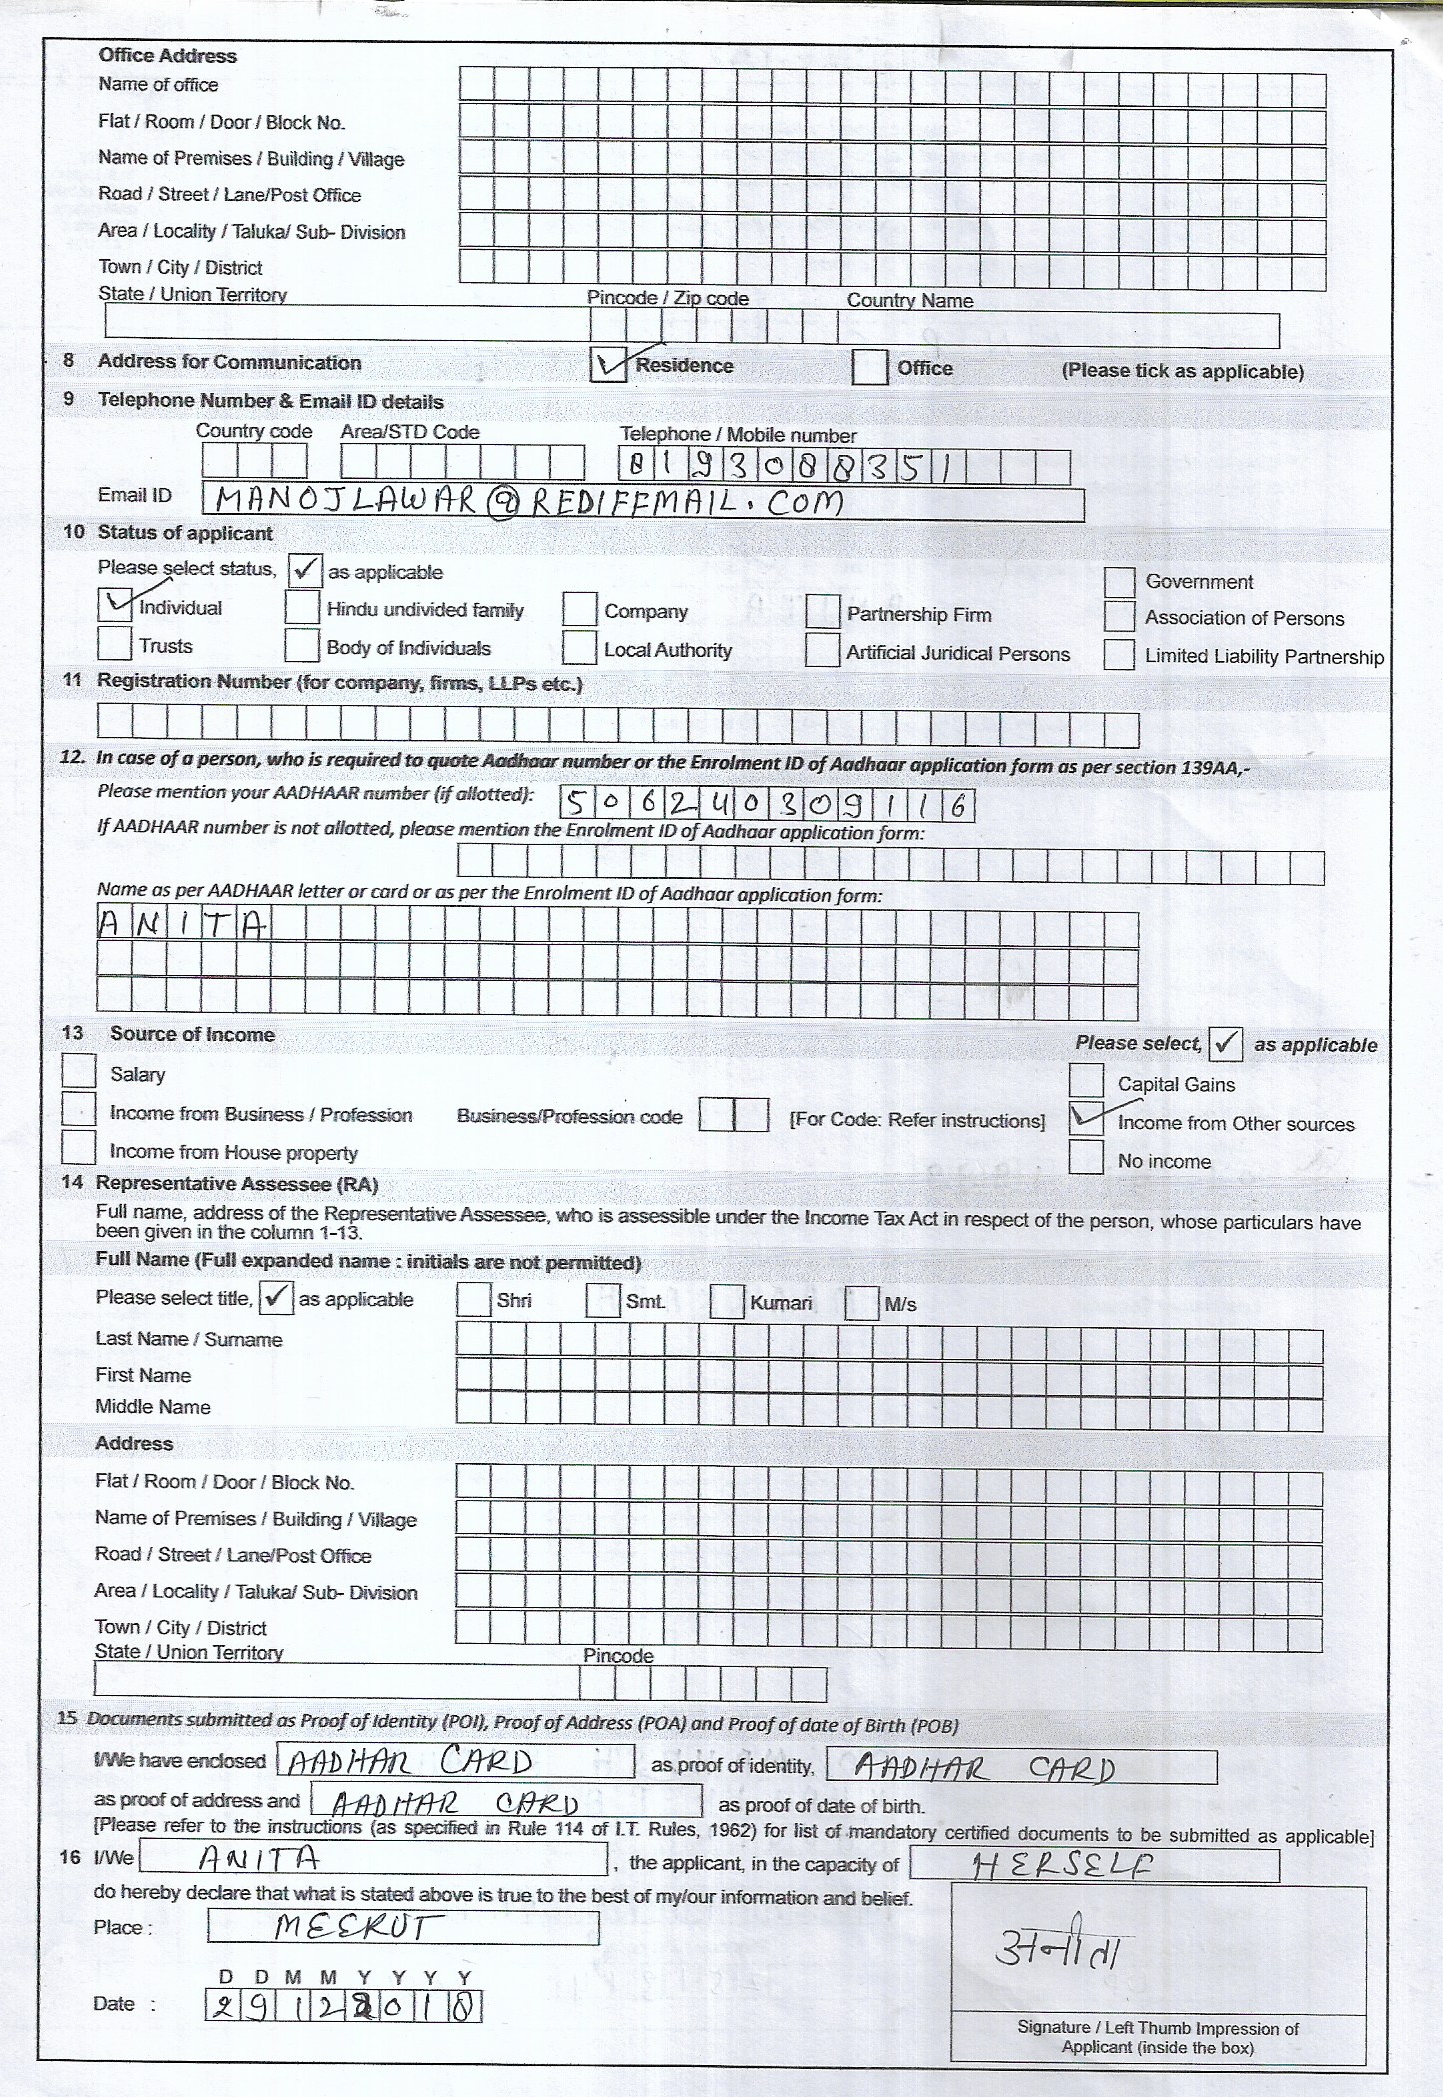 Office Address
Name of office
Flat / Room / Door / Block No.
Name of Premises / Building / Village
Road / Street / Lane/Post Office
Area / Locality / Taluka/ Sub- Division
Town / City / District
State / Union Territory Pincode / Zip code Country Name
8 Address for Communication Residence Office (Please tick as applicable)
9 Telephone Number & Email ID details
Country code Area/STD Code Telephone / Mobile number
8193088351
Email ID MANOJLAWAR@REDIFFMAIL.COM
10 Status of applicant
Please select status, ✓ as applicable
Government
Individual Hindu undivided family Company Partnership Firm Association of Persons
Trusts Body of Individuals Local Authority Artificial Juridical Persons Limited Liability Partnership
11 Registration Number (for company, firms, LLPs etc.)
12. In case of a person, who is required to quote Aadhaar number or the Enrolment ID of Aadhaar application form as per section 139AA,-
Please mention your AADHAAR number (if allotted): 506240309116
If AADHAAR number is not allotted, please mention the Enrolment ID of Aadhaar application form:
Name as per AADHAAR letter or card or as per the Enrolment ID of Aadhaar application form:
ANITA
13 Source of Income Please select, ✓ as applicable
Salary Capital Gains
Income from Business / Profession Business/Profession code [For Code: Refer instructions] Income from Other sources
Income from House property No income
14 Representative Assessee (RA)
Full name, address of the Representative Assessee, who is assessible under the Income Tax Act in respect of the person, whose particulars have
been given in the column 1-13.
Full Name (Full expanded name : initials are not permitted)
Please select title, ✓ as applicable Shri Smt. Kumari M/s
Last Name / Surname
First Name
Middle Name
Address
Flat / Room / Door / Block No.
Name of Premises / Building / Village
Road / Street / Lane/Post Office
Area / Locality / Taluka/ Sub- Division
Town / City / District
State / Union Territory Pincode
15 Documents submitted as Proof of Identity (POI), Proof of Address (POA) and Proof of date of Birth (POB)
I/We have enclosed AADHAR CARD as proof of identity, AADHAR CARD
as proof of address and AADHAR CARD as proof of date of birth.
[Please refer to the instructions (as specified in Rule 114 of I.T. Rules, 1962) for list of mandatory certified documents to be submitted as applicable]
16 I/We ANITA , the applicant, in the capacity of HERSELF
do hereby declare that what is stated above is true to the best of my/our information and belief.
Place : MEERUT
अनीता
D D M M Y Y Y Y
Date : 29122018
Signature / Left Thumb Impression of
Applicant (inside the box)